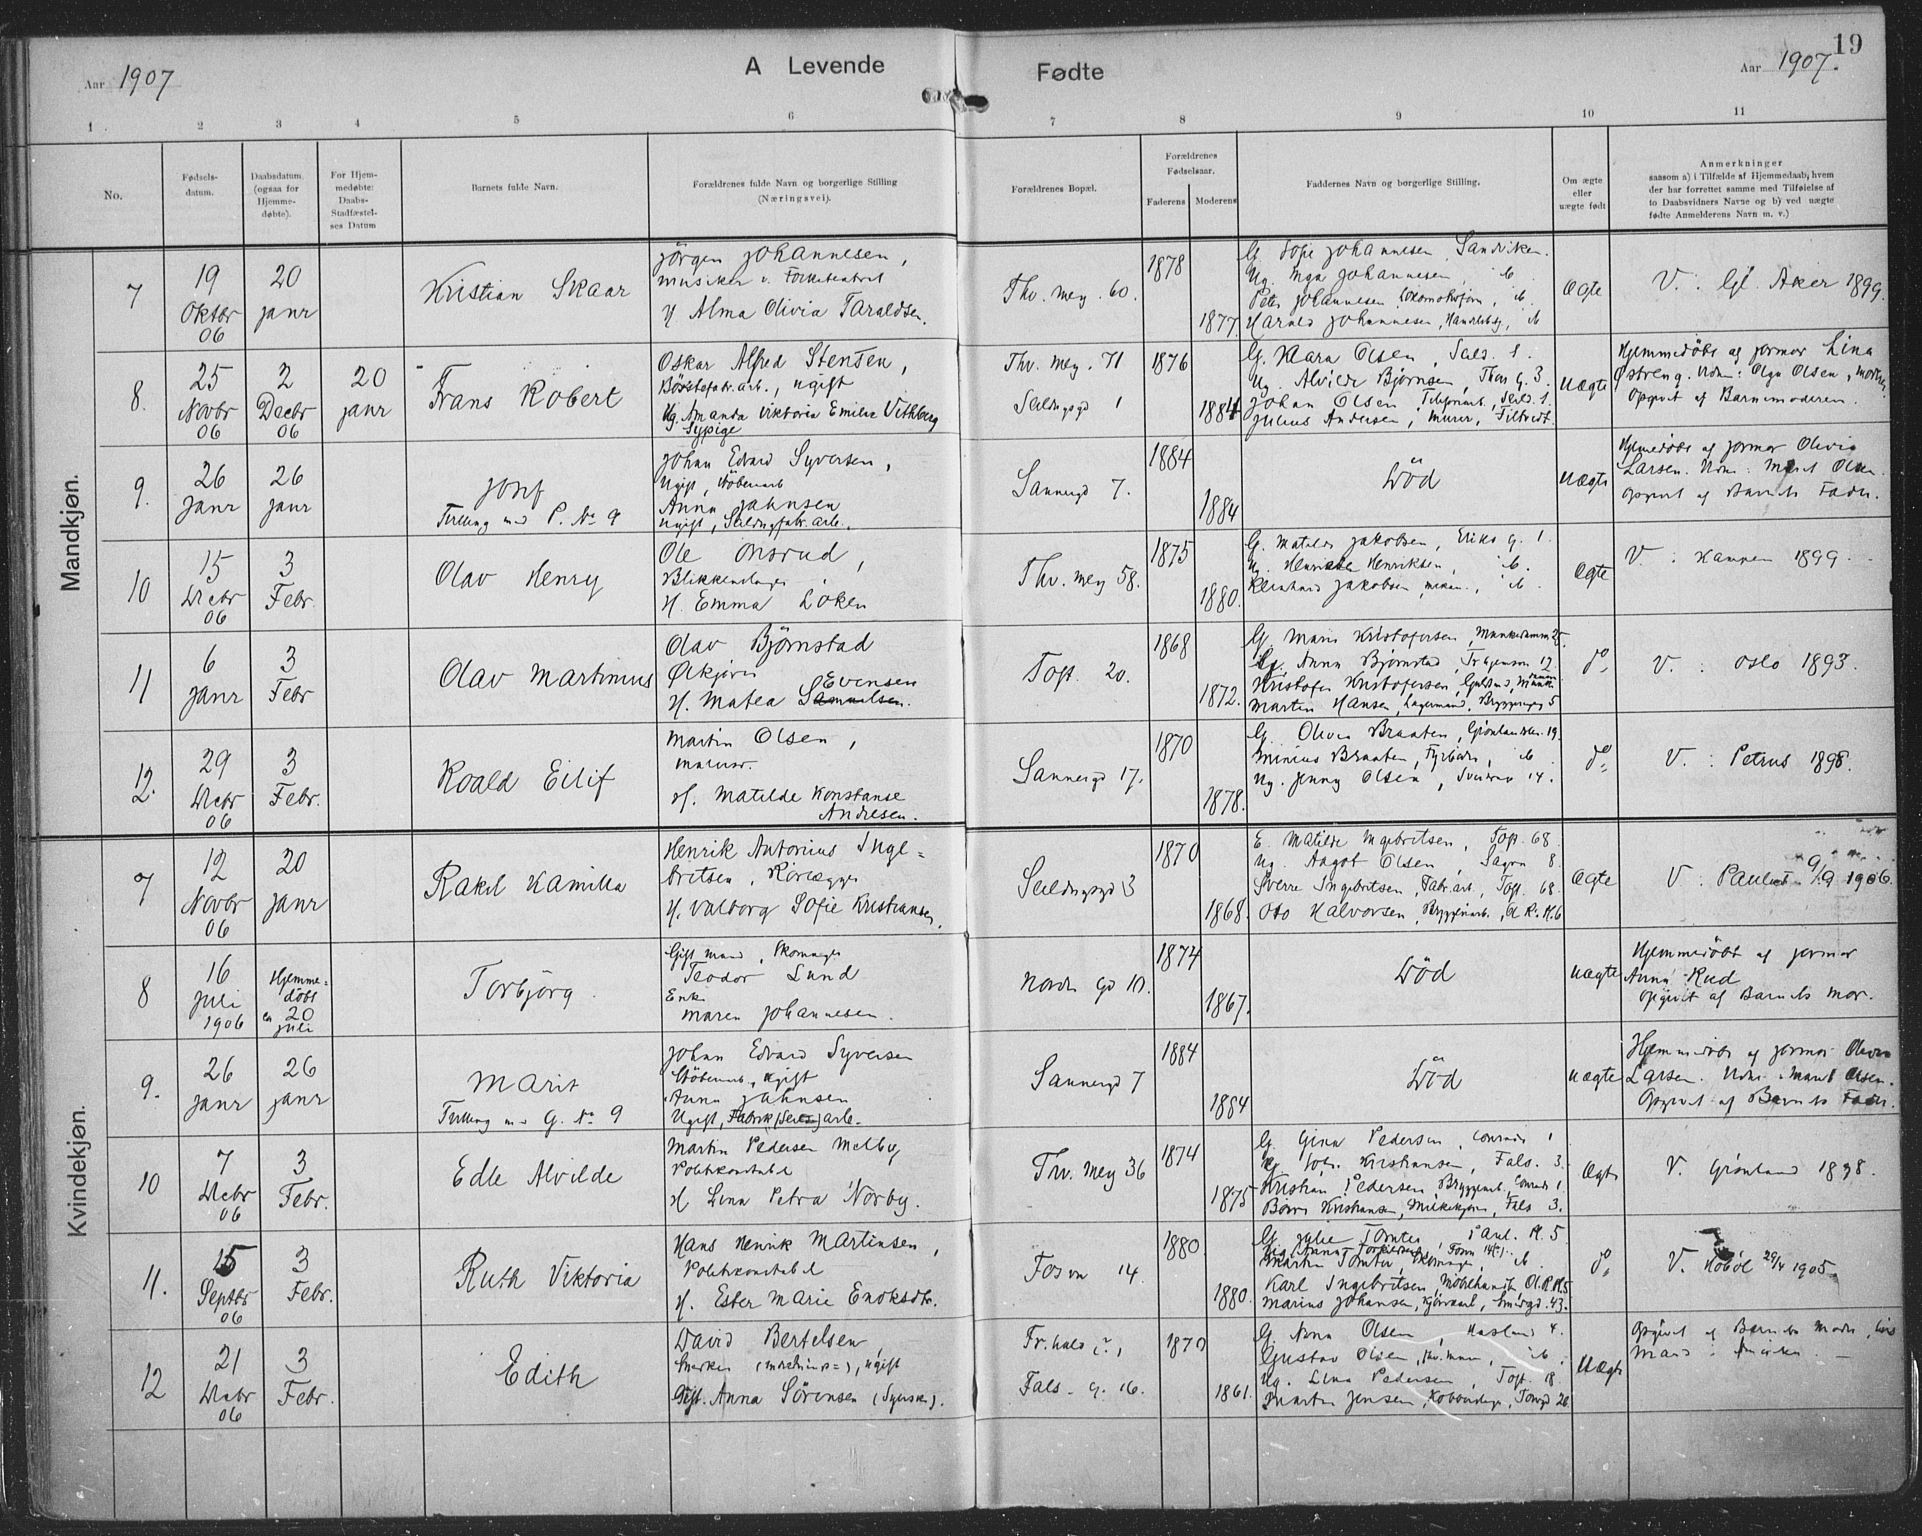 19
Aar 1907
A Levende
Fødte
Aar 1907.
1 2 3 4 5 6 7 8 9 10 11
No.
Fødsels-
datum.
Daabsdatum.
(ogsaa for
Hjemme-
døbte).
For Hjem-
medøbte:
Daabs-
Stadfæstel-
ses Datum
Barnets fulde Navn.
Forældrenes fulde Navn og borgerlige Stilling
(Næringsvei).
Forældrenes Bopæl.
Forældrenes
Fødselsaar.
Faderens
Moderens
Faddernes Navn og borgerlige Stilling.
Om ægte
eller
uægte født
Anmerkninger
saasom a) i Tilfælde af Hjemmedaab, hvem
der har forrettet samme med Tilføielse af
to Daabsvidners Navne og b) ved uægte
fødte Anmelderens Navn m. v.)
Mandkjøn.
7
19
Oktbr
06
20
janr
Kristian Skaar
Jörgen Johannesen,
Musiker v. Folketeatret
H. Alma Olivia Taraldsen.
Thv. mey. 60.
1878
1877
G. Sofie Johannesen, Sandviken.
Ug. Inga Johannesen, ib.
Peter Johannesen, ib
Harald Johannesen, ib
Ægte
V. : Gl. Aker 1899.
8.
25
Novbr
06
2
Decbr
06
20
janr
Frans Robert
Oskar Alfred Stensen,
Börstefabr. arb., ugift
Ug. Amanda Viktoria Emilie Vithberg
Sypige
Thv. mey. 71
Seildugsgd 1
1876
1884
G. Klara Olsen, Seild. 1.
Ug. Alvilde Bjørnsen, Thors G. 3.
Johan Olsen, Seild. 1.
Julius Andersen, Murer,
Uægte
Hjemmedöbt af jormor Lina
Østreng. Vidn: Olga Olsen,
Opgivet af Barnemoderen.
9.
26
Janr
26
janr
Josef
Tvilling med P. No 9
Johan Edvard Syversen,
Ugift, Stöberiarb
Anna Jahnsen
Ugift, Seildugsfabr. arb.
Sannergd 7.
1884
1884
Död
Uægte
Hjemmedöbt af jormor Olivia
Larsen. Vidn: Marit Olsen.
Opgivet af Barnets Fader.
10
15
Decbr
06
3
Febr.
Olav Henry
Ole Onsrud,
Blikkenslager
H. Emma Løken
Thv. mey 58.
1875
1880.
G. Matilde Jakobsen, Eriks g. 1.
Ug. Henriette Henriksen, ib.
Reinhard Jakobsen, mekan., ib
Ægte
V : Kampen 1899
11
6
janr
3
Febr
Olav Martinius
Olav Björnstad
Ølkjører
Evensen
H. Matea Samuelsen.
Toft. 20.
1868
1872.
G. Maris Kristofersen,
Ug. Anna Bjørnstad,
Kristofer Kristofersen,
Martin Hansen, Lagermand, 5
do
V. : Oslo 1893.
12.
29
Decbr
06
3
Febr.
Roald Eilif
Martin Olsen,
maurer.
H. Matilde Konstanse
Andresen.
Sannergd 17.
1870
1878.
G. Oliver Braaten, Grönlandslr. 19.
Minius Braaten, Fyrböder, ib
Ug. Jenny Olsen, 14.
do
V. : Petrus 1898.
Kvindekjøn.
7
12
Novbr
06
20
janr
Rakel Kamilla
Henrik Antonius Inge-
britsen, Rörlægger
H. Valborg Sofie Kristiansen.
Seildugsgd 3
1870
1868.
E. Matilde Ingebritsen, Toft. 68.
Ug. Aagot Olsen, Sagvn 8.
Sverre Ingebritsen, Fabr. arb., Toft. 68.
Otto Halvorsen, Ol. R. Pl. 6
Ægte
V : Paulus 9/9 1906.
8
16
juli
1906
Hjemme-
döbt
20
juli
Torbjörg.
Gift Mand, Skomager
Teodor Lund
Enke
Maren Johannesen.
Nordre gd 10.
1874
1867.
Död
Uægte
Hjemmedöbt af jormor
Anna Rud
Opgivet af Barnets Mor.
9.
26
janr
26
janr
Marit
Tvilling med G. No 9
Johan Edvard Syversen
Stöberiarb., ugift
Anna Jahnsen
Ugift, Fabrik (Seild.) arb.
Sannergd 7
1884
1884
Död
Uægte
Hjemmedöbt af jormor Olivia
Larsen. Vidn: Marit Olsen.
Opgivet af Barnets Fader.
10
7
Decbr
06
3
Febr.
Edle Alvilde
Martin Pedersen Melby
Politikonstabel
H Lina Petra Norby.
Thv. Mey 36
1874
1875
G. Gina Pedersen, Conrads 1
Kristiansen, Fals. 3.
Kristian Pedersen Bryggeriarb., Conrads 1
Kristiansen, Melkekjører, Fals 3.
Ægte
V. Grönland 1898.
11.
15
Septbr
06
3
Febr.
Ruth Viktoria
Hans Henrik Martinsen,
Politikonstabel
H. Ester Marie Enoksdtr.
Fosvn 14.
1880
1880.
G. Julie Tomter, Paul. Pl. 5
Martin Tomter, Skomager, ib.
Karl Ingebritsen, Möbelhandl. Ol. R. Pl. 5
Marius Johansen, 43.
do
V. Hobøl 29/4 1905
12
21
Decbr
06
3
Febr.
Edith
David Bertelsen
Smerker (maskinsp=), ugift
Gift. Anna Sörensen (Syerske).
Fr. halds
Fals. g. 16.
1870
1861.
G. Anna Olsen, 4.
Gustav Olsen, ib
Ug. Lina Pedersen, Toft. 18
Martin Jensen, 26
Uægte
Opgivet af Barnets Moder, hvis
Mand i Amerika.